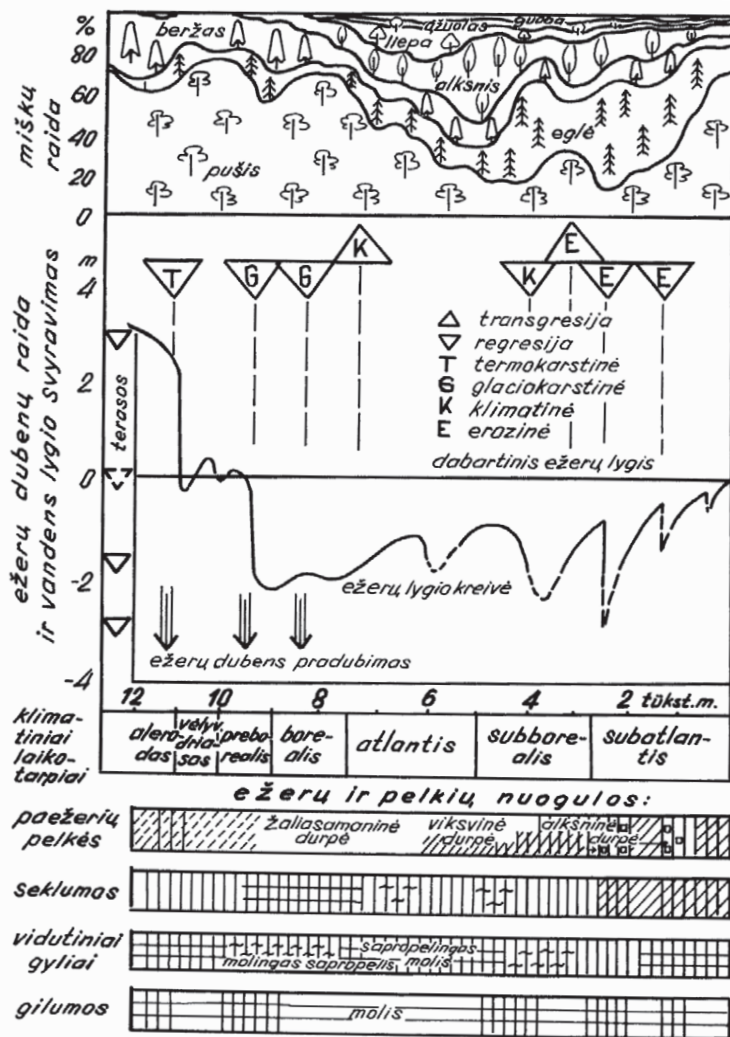 %
80
60
40
20
0
mišku̧
raida
beržas
liepa
ąžuolas
guoba
alksnis
eglė
pušis
ežeru̧ dubenu̧ raida
ir vandens lygio svyravimas
m
4
2
0
-2
-4
T
G
G
K
K
E
E
E
△ transgresija
▽ regresija
T termokarstinė
G glaciokarstinė
K klimatinė
E erozinė
dabartinis ežeru̧ lygis
terasos
ežeru̧ lygio kreivė
ežeru̧ dubens pradubimas
12 10 8 6 4 2 tūkst.m.
klima-
tiniai
laiko-
tarpiai
alero-
das
vėlyv.
dria-
sas
prebo-
realis
bore-
alis
atlantis
subbore-
alis
subatlan-
tis
ežeru̧ ir pelkiu̧ nuogulos:
paežeriu̧
pelkės
žaliasamaninė
durpė
viksvinė
durpė
alksninė
durpė
seklumos
vidutiniai
gyliai
molingas sapropelis
sapropelingas
molis
gilumos
molis